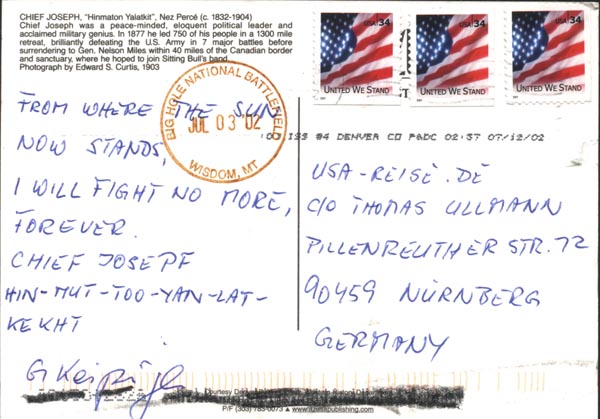 CHIEF JOSEPH, "Hinmaton Yalatkit", Nez Percé (c. 1832-1904)
Chief Joseph was a peace-minded, eloquent political leader and
acclaimed military genius. In 1877 he led 750 of his people in a 1300 mile
retreat, brilliantly defeating the U.S. Army in 7 major battles before
surrendering to Gen. Nelson Miles within 40 miles of the Canadian border
and sanctuary, where he hoped to join Sitting Bull's band.
Photograph by Edward S. Curtis, 1903
USA 34
UNITED WE STAND
USA 34
UNITED WE STAND
USA 34
UNITED WE STAND
BIG HOLE NATIONAL BATTLEFIELD
JUL 03 '02
WISDOM, MT
155 #4 DENVER CO P&DC 02:57 07/12/02
FROM WHERE THE SUN
NOW STANDS,
I WILL FIGHT NO MORE,
FOREVER.
CHIEF JOSEPF
HIN-MUT-TOO-YAN-LAT-
KEKHT
USA-REISE.DE
C/O THOMAS ULLMANN
PILLENREUTHER STR. 72
90459 NÜRNBERG
GERMANY
Courtesy
P/F (303) 785-0073 ▲